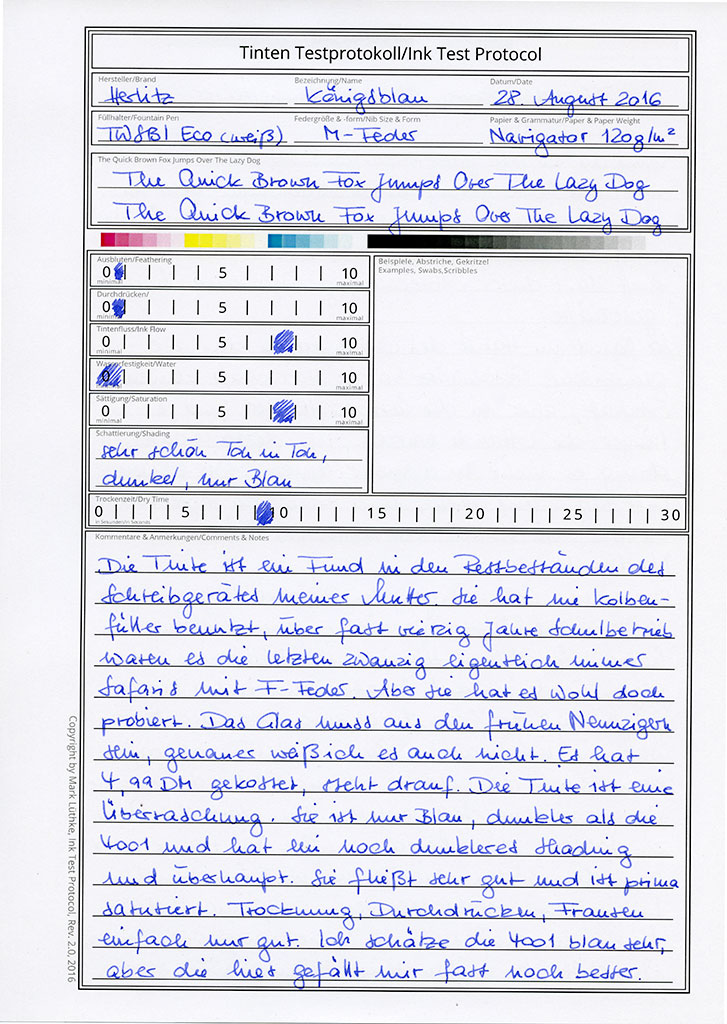 Tinten Testprotokoll/Ink Test Protocol
Hersteller/Brand Bezeichnung/Name Datum/Date
Herlitz Königsblau 28. August 2016
Füllhalter/Fountain Pen Federgröße & -form/Nib Size & Form Papier & Grammatur/Paper & Paper Weight
TWSBI Eco (weiß) M-Feder Navigator 120g/m²
The Quick Brown Fox Jumps Over The Lazy Dog
The Quick Brown Fox Jumps Over The Lazy Dog
The Quick Brown Fox Jumps Over The Lazy Dog
Ausbluten/Feathering
0 5 10
minimal maximal
Durchdrücken/
0 5 10
minimal maximal
Tintenfluss/Ink Flow
0 5 10
minimal maximal
Wasserfestigkeit/Water
0 5 10
maximal
Sättigung/Saturation
0 5 10
minimal maximal
Schattierung/Shading
sehr schön Ton in Ton,
dunkel, nur Blau
Beispiele, Abstriche, Gekritzel
Examples, Swabs,Scribbles
Trockenzeit/Dry Time
0 5 10 15 20 25 30
in Sekunden/in Seconds
Kommentare & Anmerkungen/Comments & Notes
Die Tinte ist ein Fund in den Restbeständen des
Schreibgerätes meiner Mutter. Sie hat nie Kolben-
füller benutzt, über fast vierzig Jahre Schulbetrieb
waren es die letzten zwanzig eigentlich immer
Safaris mit F-Feder. Aber sie hat es wohl doch
probiert. Das Glas muss aus den frühen Neunzigern
sein, genauer weiß ich es auch nicht. Es hat
4,99 DM gekostet, steht drauf. Die Tinte ist eine
Überraschung. Sie ist nur Blau, dunkler als die
4001 und hat ein noch dunkleres Shading
und überhaupt. Sie fließt sehr gut und ist prima
saturiert. Trocknung, Durchdrücken, Fransen
einfach nur gut. Ich schätze die 4001 blau sehr,
aber die hier gefällt mir fast noch besser.
Copyright by Mark Lüthke, Ink Test Protocol, Rev. 2.0, 2016